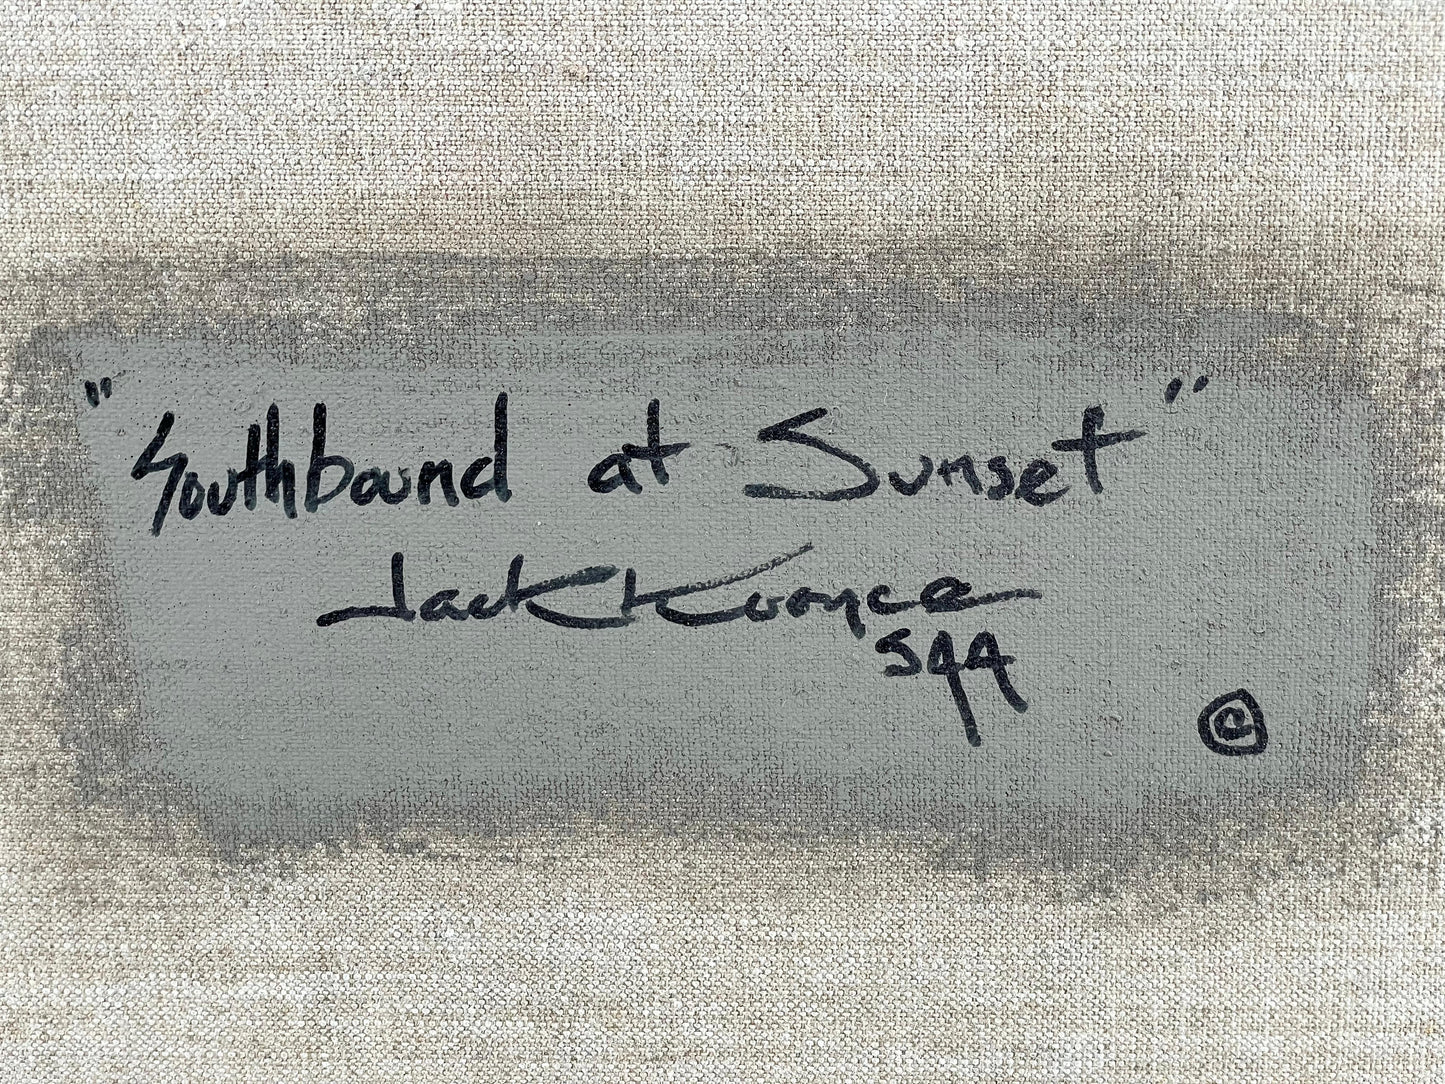 "Southbound at Sunset"
Jack Kuonce
SAA
©